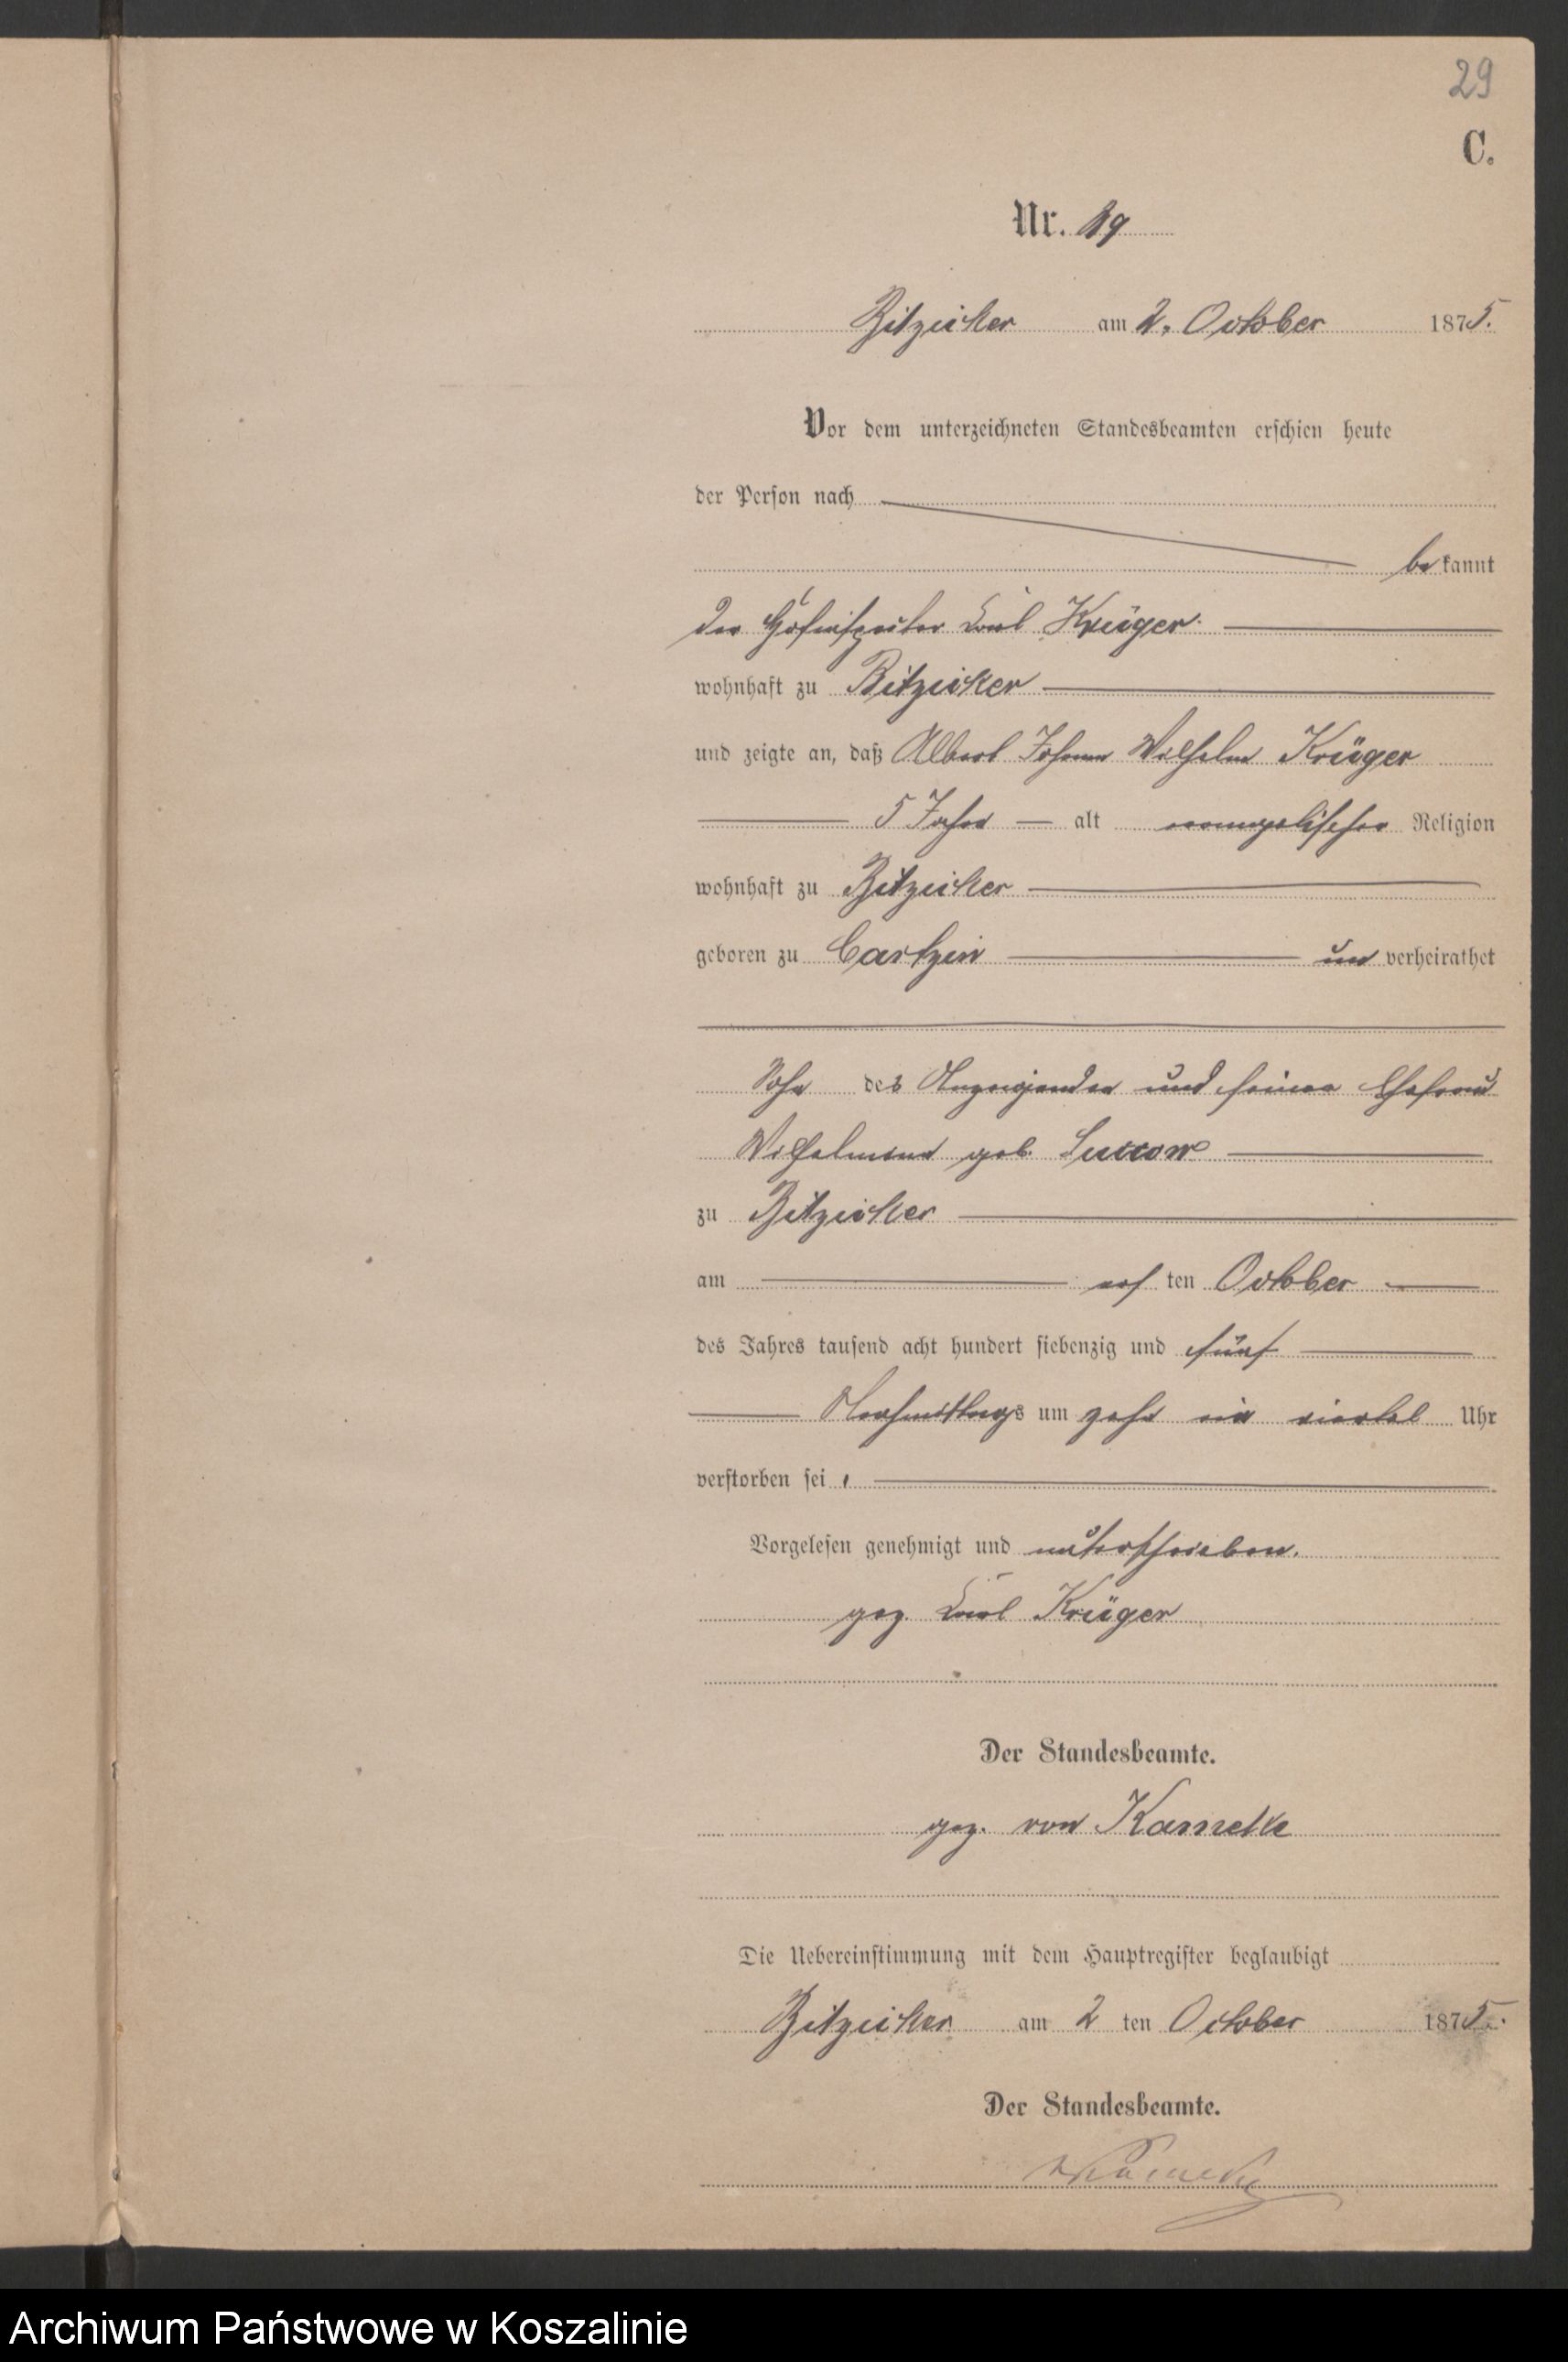 29
C.
Nr. 19
Bitzicker am 2. October 1875.
Vor dem unterzeichneten Standesbeamten erschien heute
der Person nach
bekannt
der Carl Krüger
wohnhaft zu Bitzicker
und zeigte an, daß Albert Johann Wilhelm Krüger
5 Jahre alt evangelischer Religion
wohnhaft zu Bitzicker
geboren zu Cartzin unverheirathet
Sohn des Anzeigenden und seiner Ehefrau
Wilhelmine geb. Succow
zu Bitzicker
am ersten October
des Jahres tausend acht hundert siebenzig und fünf
Nachmittags um zehn ein viertel Uhr
verstorben sei.
Vorgelesen genehmigt und unterschrieben.
gez. Carl Krüger
Der Standesbeamte.
gez. von Kameke
Die Uebereinstimmung mit dem Hauptregister beglaubigt
Bitzicker am 2 ten October 1875.
Der Standesbeamte.
vKameke
Archiwum Państwowe w Koszalinie